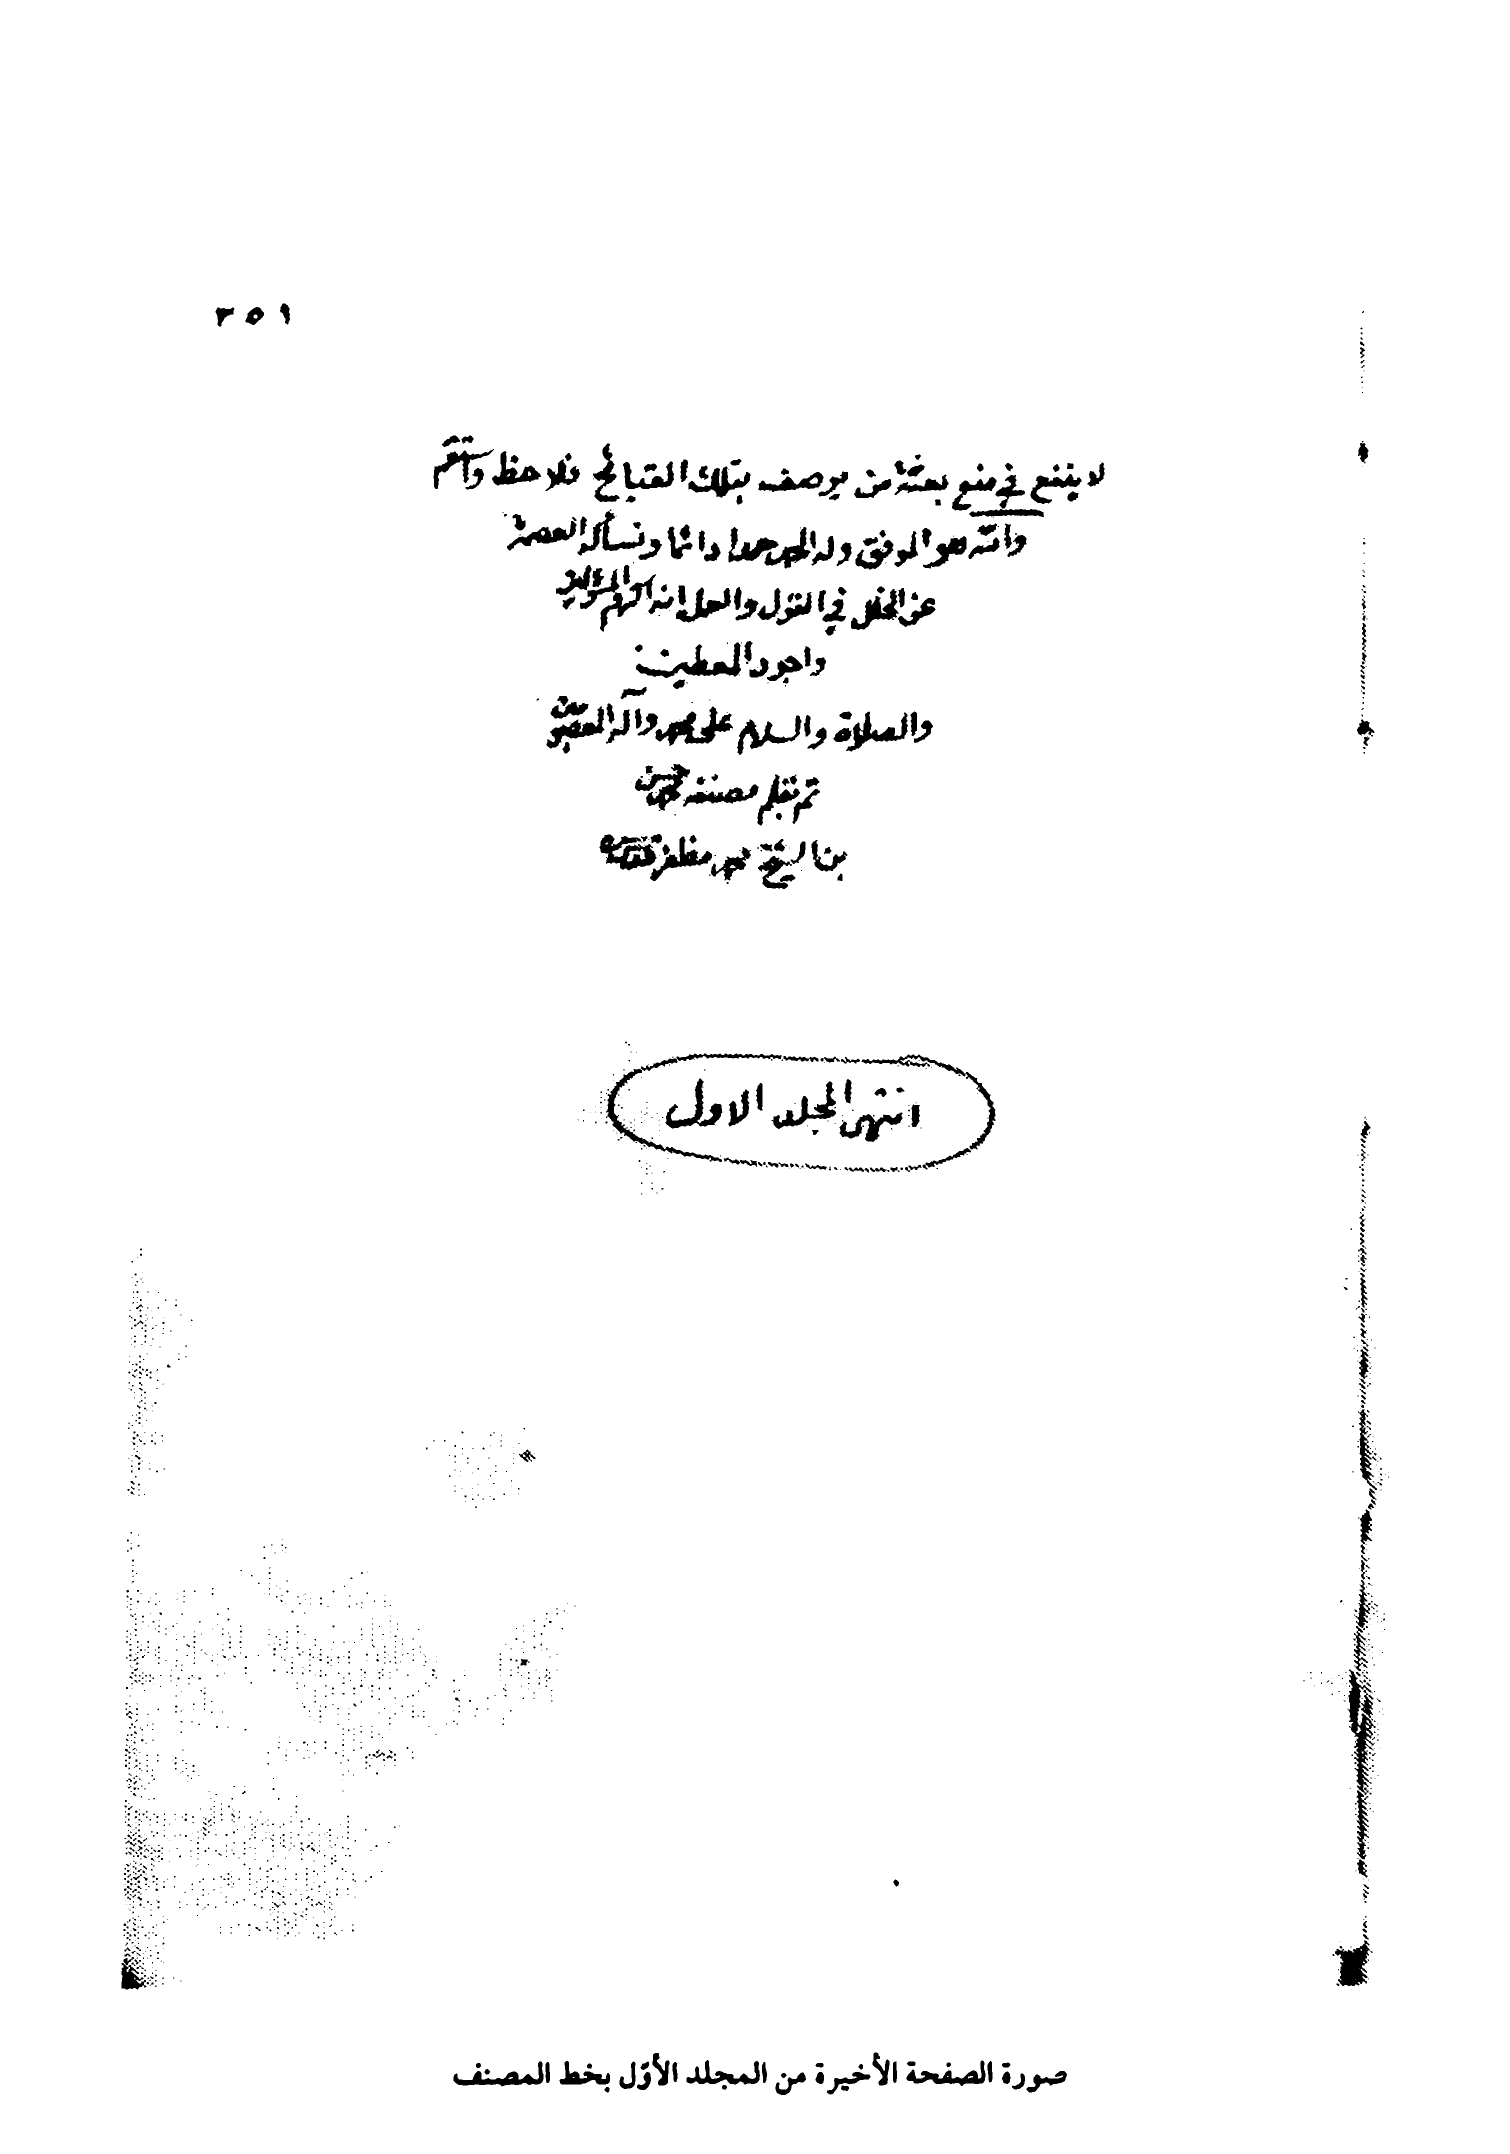 ٣٥١
لا ينفع في منع بعثة من يوصف بتلك القبائح فلاحظ واستقم
والله هو الموفق وله الحمد حمدا دائما ونسأله العصمة
عن الخلل في القول والعمل انه اكرم المسؤولين
واجود المعطين
والصلاة والسلام على محمد وآله المعصومين
تم بقلم مصنفه محمد حسن
بن الشيخ محمد مظفر
انتهى المجلد الاول
صورة الصفحة الأخيرة من المجلد الأوّل بخط المصنف